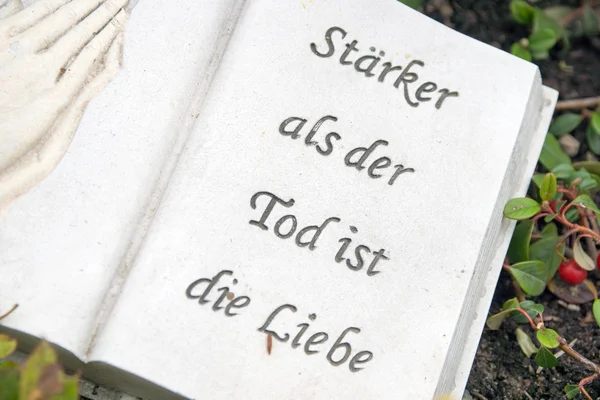 Stärker
als der
Tod ist
die Liebe